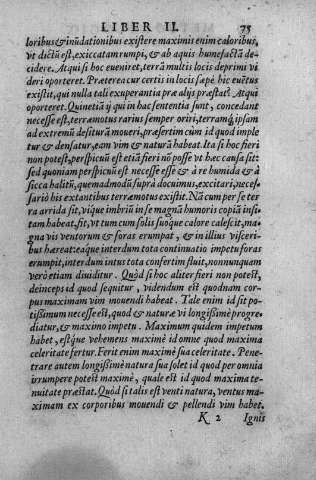 LIBER II. 75
loribus & inūdationibus existere maximis enim caloribus,
vt dictū est, exiccatam rumpi, & ab aquis humefactā de-
cidere. Atqui si hoc eueniret, terrā multis locis deprimi vi
deri oporteret. Præterea cur certis in locis sæpè hic euētus
existit, qui nulla tali exuperantia præ alijs præstat? Atqui
oporteret. Quinetiā ij qui in hac sententia sunt, concedant
necesse est, terræmotus rariùs semper oriri, terramq́; ipsam
ad extremū desiturā moueri, præsertim cùm id quod imple
tur & densatur, eam vim & naturā habeat. Ita si hoc fieri
non potest, perspicuū est etiā fieri nō posse vt hæc causa sit:
sed quoniam perspicuū est necesse esse & à re humida & à
sicca halitū, quemadmodū suprà docuimus, excitari, neces-
sariò his extantibus terræmotus existit. Nā cum per se ter
ra arrida sit, vique imbriū in se magnā humoris copiā insi-
tam habeat, fit, vt tum cum solis suoque calore calescit, ma-
gna vis ventorum & foras erumpat, & in illius visceri-
bus hæreat: eaque interdum tota continuatio impetu foras
erumpit, interdum intus tota confertim fluit, nonnunquam
verò etiam diuiditur. Quòd si hoc aliter fieri non potest,
deinceps id quod sequitur, videndum est quodnam cor-
pus maximam vim mouendi habeat. Tale enim id sit po-
tißimum necesse est, quod & naturæ vi longißimè progre-
diatur, & maximo impetu. Maximum quidem impetum
habet, estq́ue vehemens maximè id omne quod maxima
celeritate fertur. Ferit enim maximè sua celeritate. Pene-
trare autem longißimè natura sua solet id quod per omnia
irrumpere potest maximè, quale est id quod maxima te-
nuitate præstat. Quòd si talis est venti natura, ventus ma-
ximam ex corporibus mouendi & pellendi vim habet.
K 2 Ignis